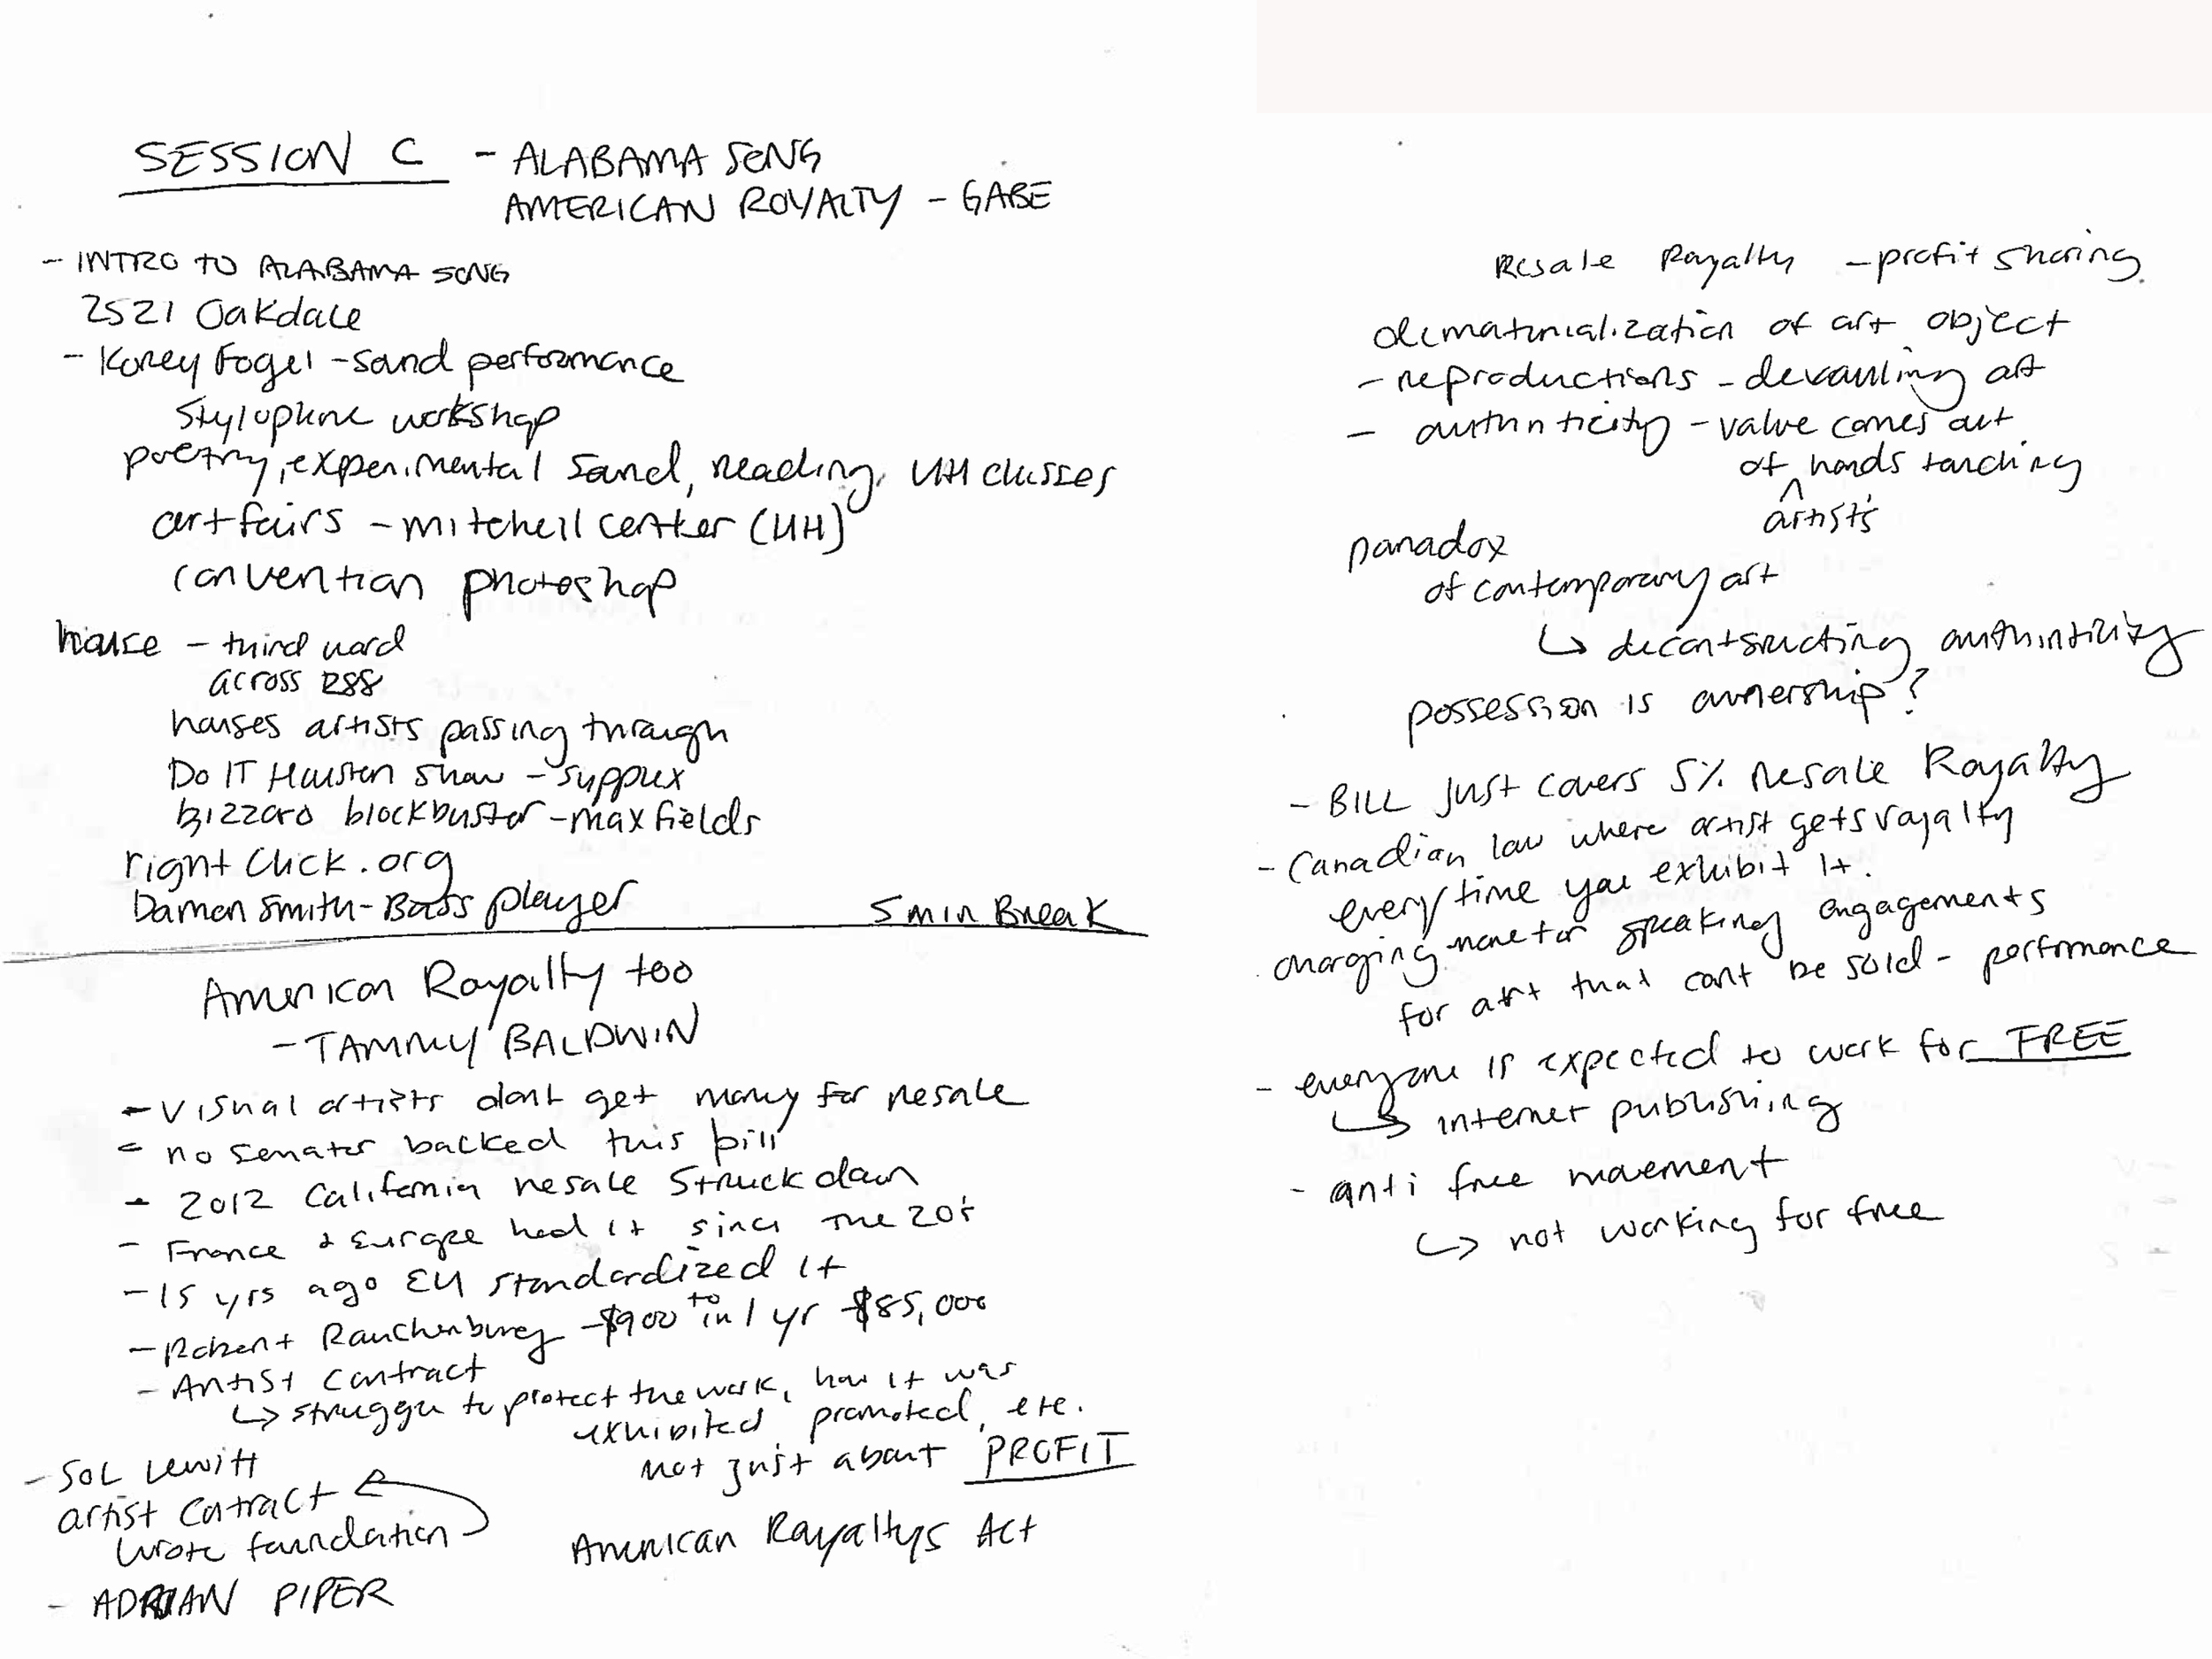 SESSION C - ALABAMA SONG
AMERICAN ROYALTY - GABE
- INTRO TO ALABAMA SONG
2521 Oakdale
- Korey Fogel - sand performance
Stylophone workshop
poetry, experimental sand, reading, UH classes
art fairs - mitchell center (UH)
convention photoshop
house - third ward
across 288
houses artists passing through
Do IT Houston show - syppux
bizzaro blockbuster - max fields
right click.org
Damon Smith - Bass player
5 min Break
American Royalty too
- TAMMY BALDWIN
- Visual artists dont get money for resale
- no senator backed this bill
- 2012 California resale struck down
- France & Europe had it since the 20's
- 15 yrs ago EU standardized it
- Robert Rauchenburg - $900 to in 1 yr $85,000
- Artist contract
↳ struggle to protect the work, how it was
exhibited, promoted, etc.
not just about PROFIT
- SOL Lewitt
artist contract
wrote foundation
American Royaltys Act
- ADRIAN PIPER
Resale Royalty - profit sharing
dematerialization of art object
- reproductions - devauling art
- authinticity - value comes out
of hands touching
^
artist's
paradox
of contemporary art
↳ decontsructing authinticity
possession is ownership?
- BILL just covers 5% resale Royalty
- Canadian law where artist gets royalty
every time you exhibit it.
charging more for speaking engagements
for art that cant be sold - performance
- everyone is expected to work for FREE
↳ internet publishing
- anti free movement
↳ not working for free